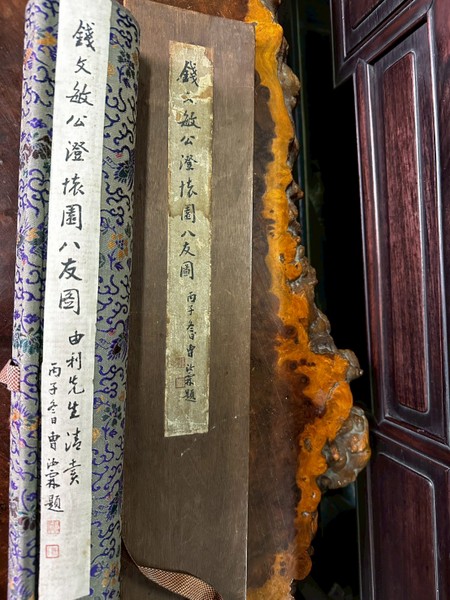 錢文敏公澄懷園八友圖
由利先生清賞
丙子冬日曹汝霖題
錢文敏公澄懷園八友圖
丙子冬日曹汝霖題